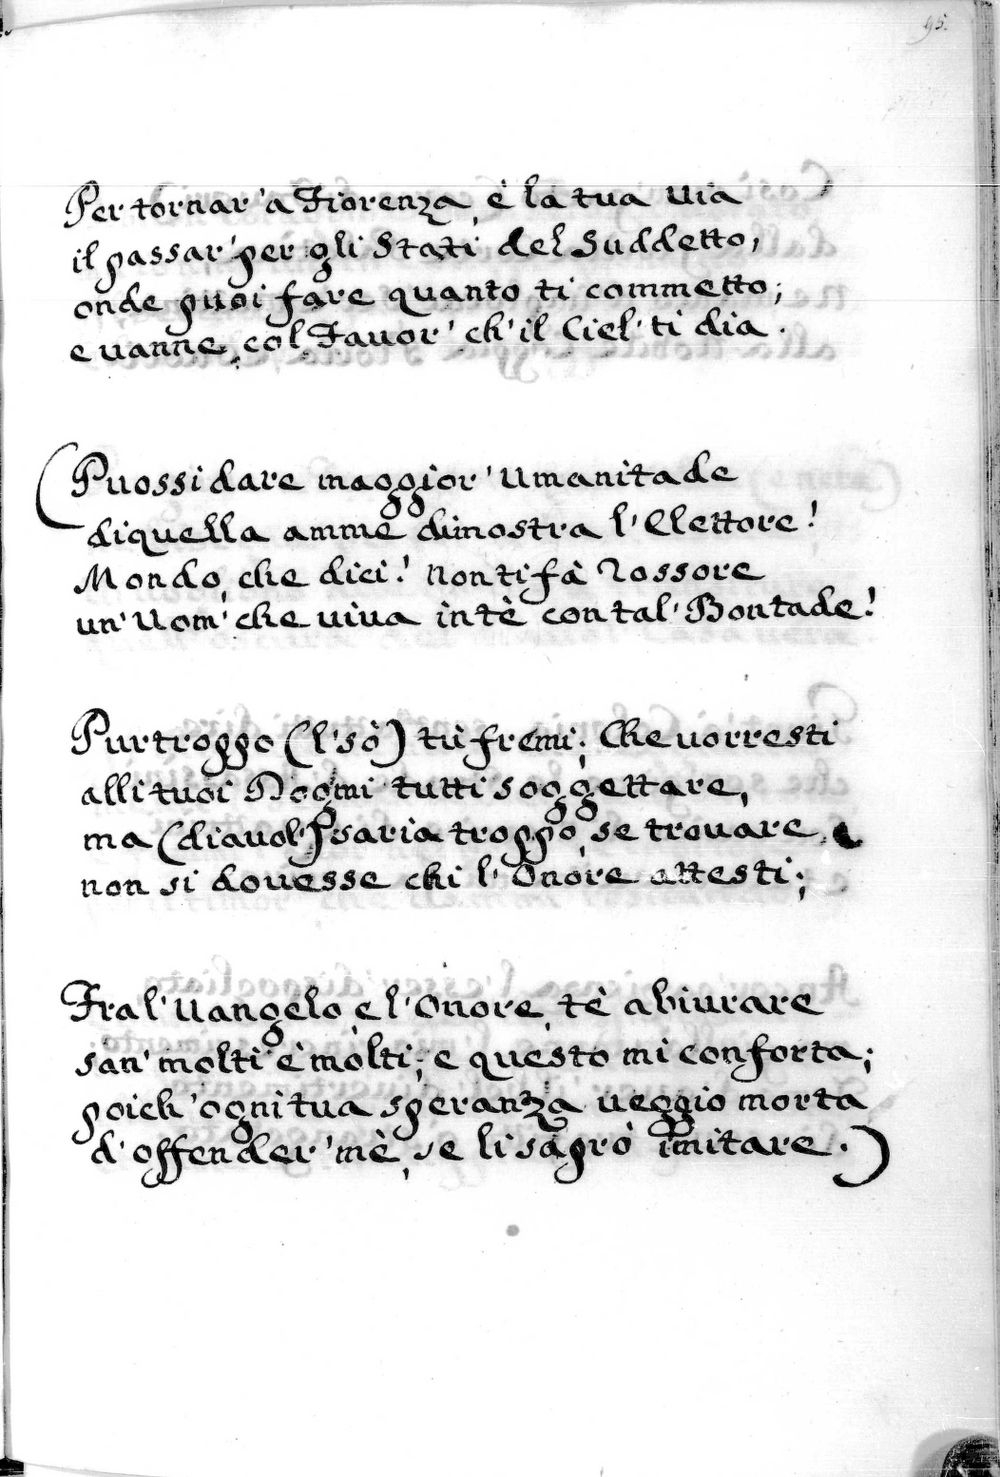 95.
Per tornar' à Fiorenza, è la tua uia
il passar' per gli Stati del Suddetto,
onde puoi fare quanto ti commetto;
e uanne, col Fauor' ch' il Ciel' ti dia.
(Puossi dare maggior' umanitade
di quella ammè dimostra l' Elettore!
Mondo, che dici! non ti fà rossore
un' Uom' che uiua in tè con tal' Bontade!
Pur troppo (l' sò) tù fremi; Che uorresti
alli tuoi Dogmi tutti soggettare,
ma (diauol') saria troppo, se trouare
non si douesse chi l' Onore attesti;
Fra l' Uangelo, e l' Onore, tè abiurare
san' molti è molti; e questo mi conforta;
poich' ogni tua speranza ueggio morta
d' offender' mè, se li saprò imitare.)